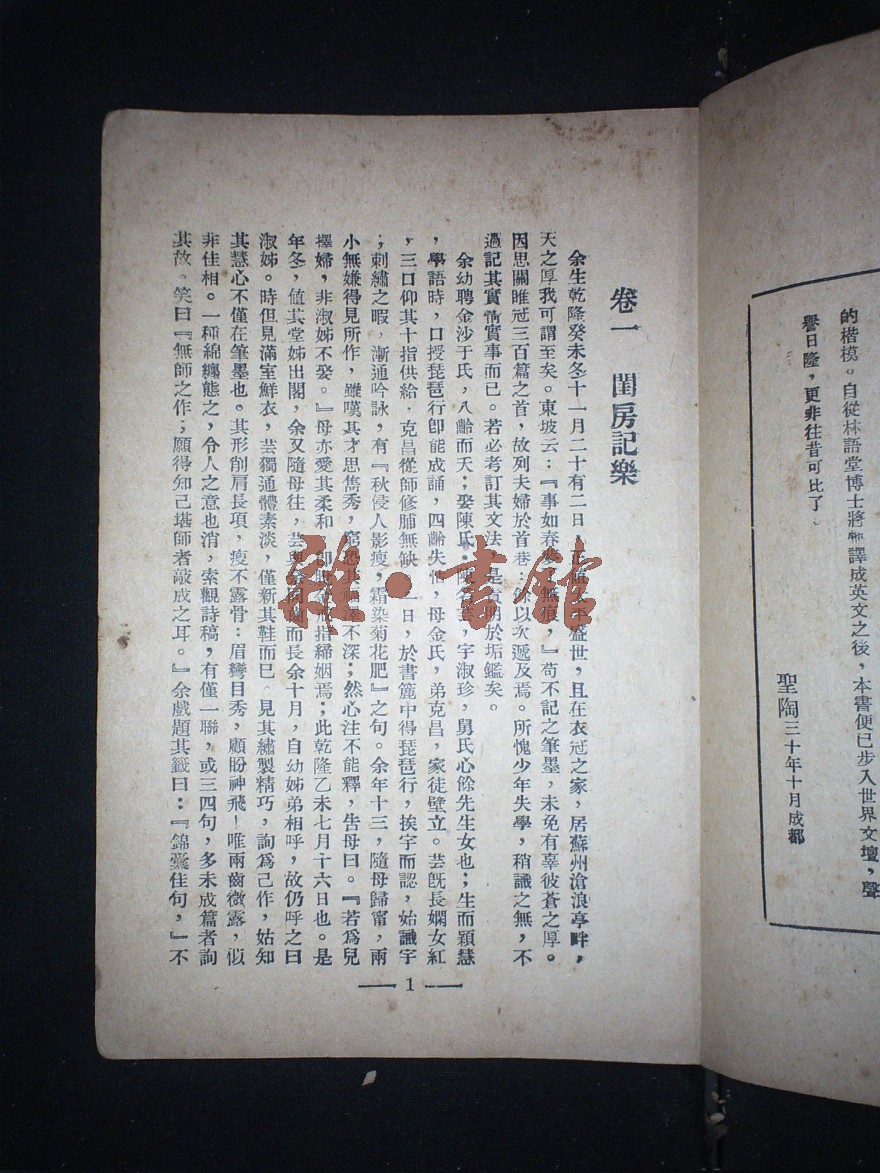 的楷模。自從林語堂博士將譯成英文之後，本書便已步入世界文壇，聲
譽日隆，更非往昔可比了。
聖陶三十年十月成都
卷一　閨房記樂
余生乾隆癸未冬十一月二十有二日，正太平盛世，且在衣冠之家，居蘇州滄浪亭畔，
天之厚我可謂至矣。東坡云：『事如春夢了無痕，』苟不記之筆墨，未免有辜彼蒼之厚。
因思關雎冠三百篇之首，故列夫婦於首卷，餘以次遞及焉。所愧少年失學，稍識之無，不
過記其實情實事而已。若必考訂其文法，是責明於垢鑑矣。
余幼聘金沙于氏，八齡而夭；娶陳氏。陳名芸，字淑珍，舅氏心餘先生女也；生而穎慧
，學語時，口授琵琶行卽能成誦，四齡失怙，母金氏，弟克昌，家徒壁立。芸旣長嫻女紅
，三口仰其十指供給，克昌從師修脯無缺。一日，於書簏中得琵琶行，挨字而認，始識字
；刺繡之暇，漸通吟詠，有『秋侵人影瘦，霜染菊花肥』之句。余年十三，隨母歸甯，兩
小無嫌得見所作，雖嘆其才思雋秀，竊恐其福澤不深；然心注不能釋，告母曰。『若爲兒
擇婦，非淑姊不娶。』母亦愛其柔和，卽脫金戒指締姻焉；此乾隆乙未七月十六日也。是
年冬，値其堂姊出閣，余又隨母往，芸與余同齒而長余十月，自幼姊弟相呼，故仍呼之曰
淑姊。時但見滿室鮮衣，芸獨通體素淡，僅新其鞋而已。見其繡製精巧，詢爲己作，姑知
其慧心不僅在筆墨也。其形削肩長項，瘦不露骨：眉彎目秀，顧盼神飛！唯兩齒微露，似
非佳相。一種綿纏態之，令人之意也消，索觀詩稿，有僅一聯，或三四句，多未成篇者詢
其故。笑曰『無師之作；願得知己堪師者敲成之耳。』余戲題其籤曰：『錦囊佳句，』不
— 1 —
雜·書館